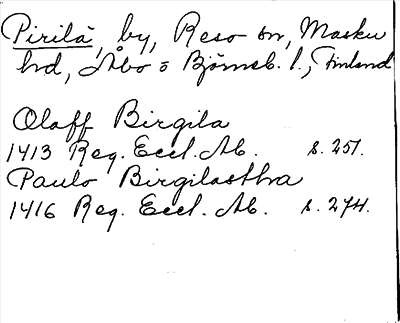 Pirilä, by, Reso sn, Masku
hd, Åbo o Björneb. l., Finland
Olaff Birgila
1413 Reg. Eccl. Ab. s. 251.
Paulo Birgilasthra
1416 Reg. Eccl. Ab. s. 274.